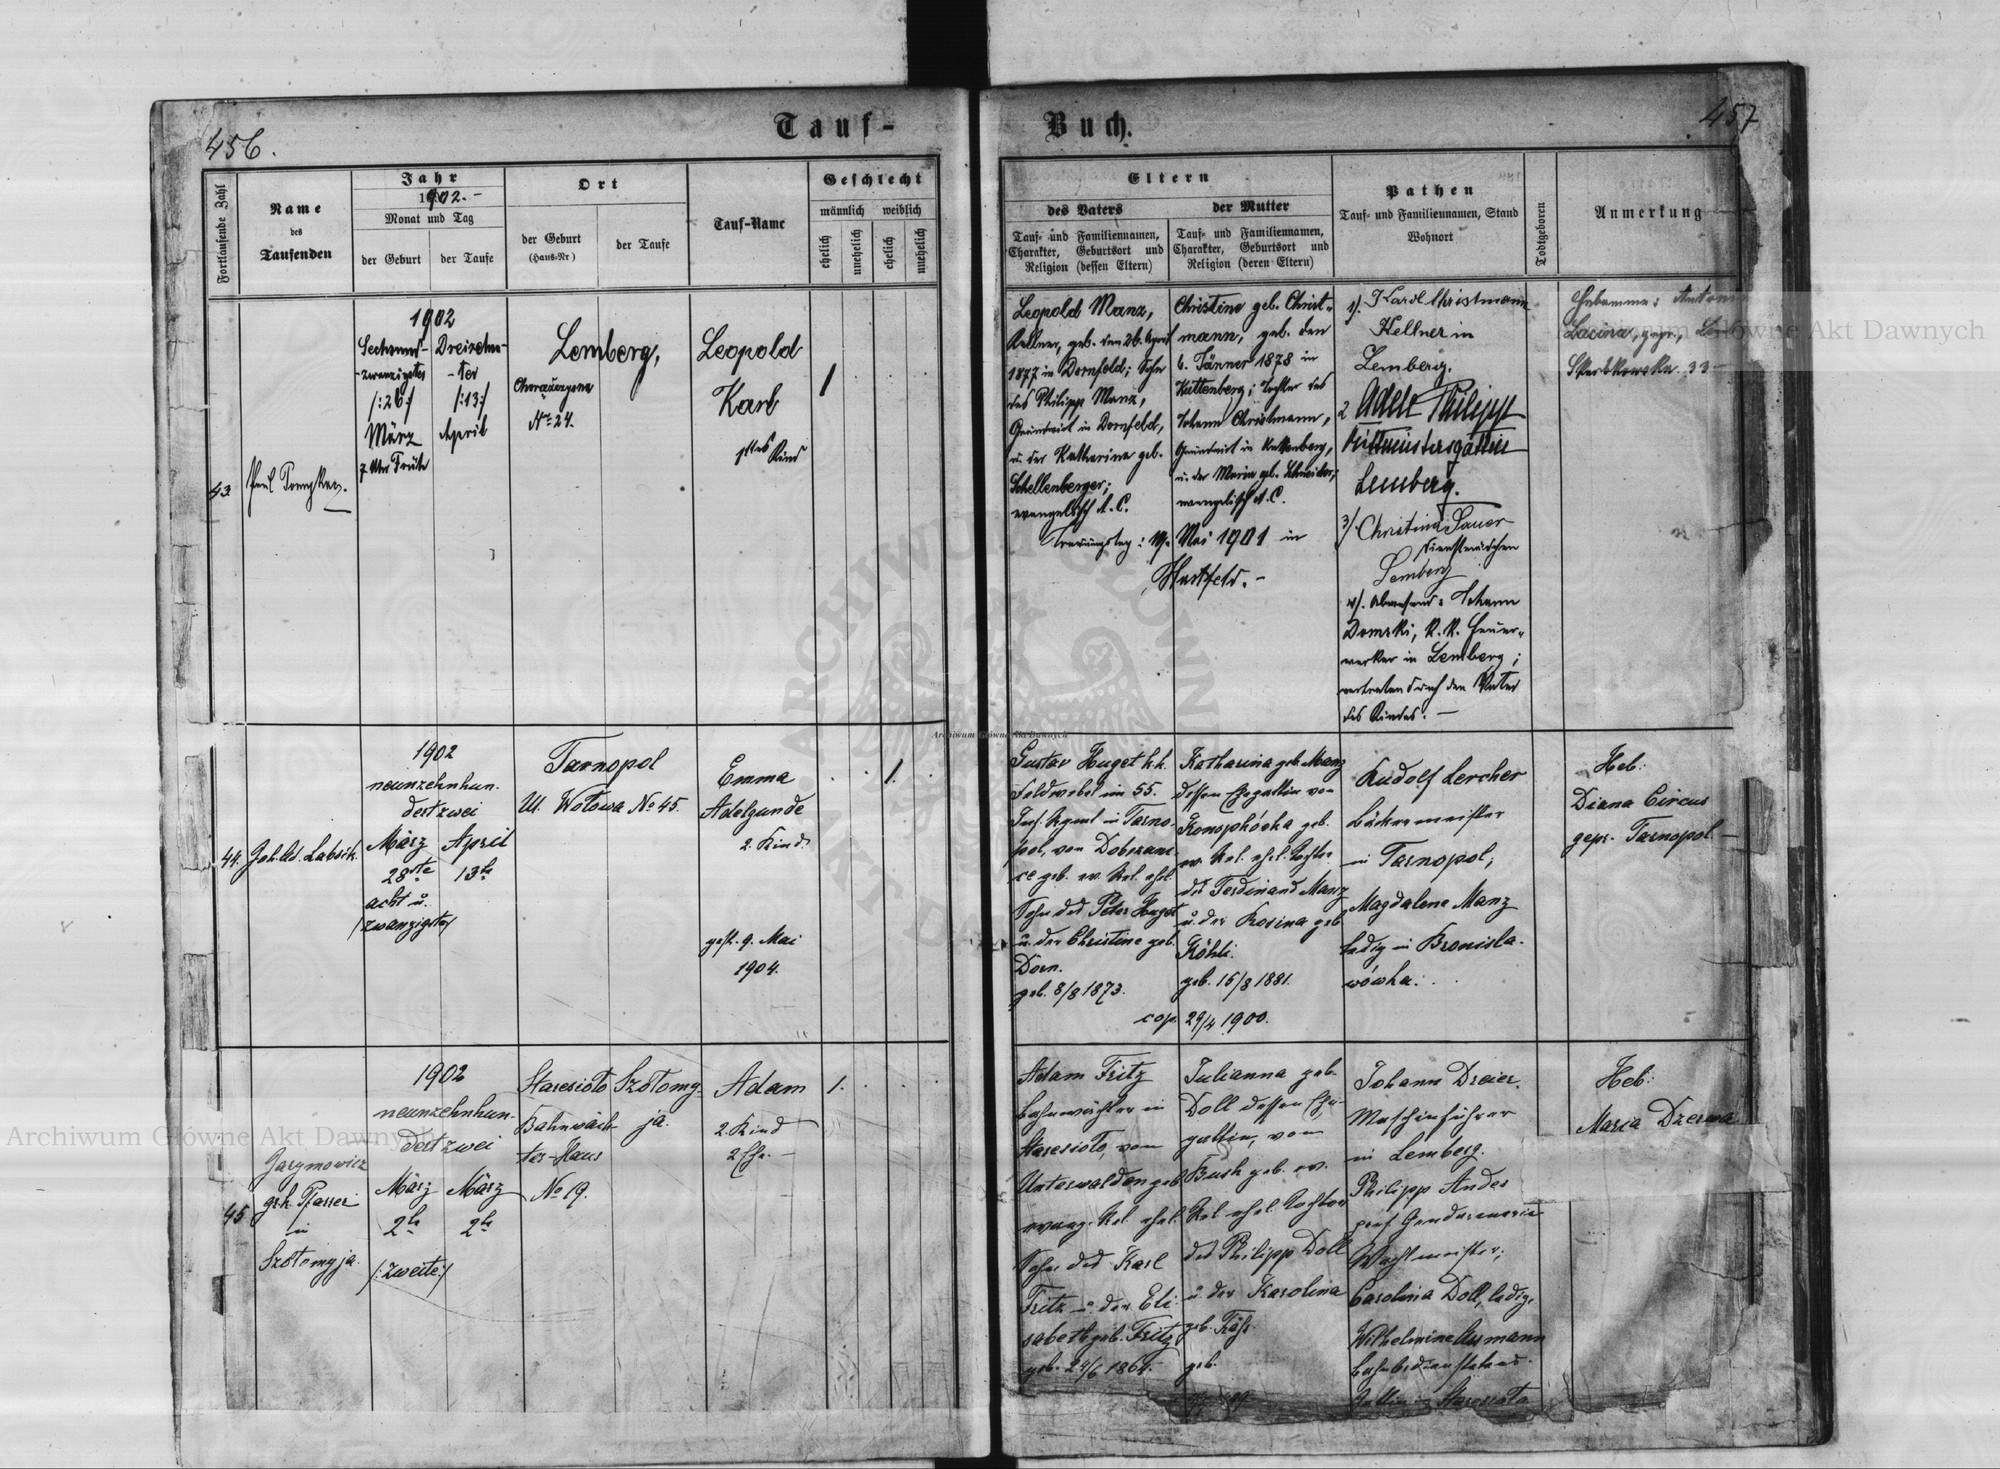 456.
Tauf-
Buch.
457
Fortlaufende Zahl
Name
des
Taufenden
Jahr
1902.-
Monat und Tag
der Geburt
der Taufe
Ort
der Geburt
(Haus-Nr)
der Taufe
Tauf-Name
Geschlecht
männlich
weiblich
ehelich
unehelich
ehelich
unehelich
Eltern
des Vaters
Tauf- und Familiennamen,
Charakter, Geburtsort und
Religion (dessen Eltern)
der Mutter
Tauf- und Familiennamen,
Charakter, Geburtsort und
Religion (deren Eltern)
Pathen
Tauf- und Familiennamen, Stand
Wohnort
Todtgeboren
Anmerkung
43.
Paul
1902
Sechsund-
zwanzigster
/:26:/
März
7 Uhr Früh
Dreizehn-
ter
/:13:/
April
Lemberg,
No 24.
Leopold
Karl
1tes Kind
1
Leopold Manz,
Kellner, geb. den 26. April
1877 in Dornfeld; Sohn
des Philipp Manz,
Grundwirt in Dornfeld,
u. der Katharina geb.
Schellenberger;
evangelisch A. C.
Trauungstag: 19.
Christine geb. Christ-
mann, geb. den
6. Jänner 1878 in
Kuttenberg; Tochter des
Johann Christmann,
Grundwirt in Kuttenberg,
u. der Maria geb. Schneider;
evangelisch A. C.
Mai 1901 in
Hartfeld.-
1/. Karl Christmann
Kellner in
Lemberg.
2 Adele Philipp
Rittmeistersgattin
Lemberg.
3/ Christina Sauer
Dienstmädchen
Lemberg
4/. Abwesend: Johann
Domski, k.k. Feuer-
werker in Lemberg;
vertreten durch den Vater
des Kindes.-
Hebamme: Antonia
Lacina, gepr.,
Skarbkowska 33
44.
Joh. Ad. Labsik.
1902
neunzehnhun-
dertzwei
März
28te
acht u.
/zwanzigste/
April
13te
Tarnopol
Ul. Wolowa No 45.
Emma
Adelgunde
2. Kind.
gest. 9. Mai
1904.
1.
Gustav Huget k.k.
Feldwebel im 55.
Inf. Regmt in Tarno-
pol, von
geb. ev. Rel. ehel.
Sohn des Peter Huget
u. der Christine geb.
Dorn.
geb. 8/8 1873.
cop.
Katharina geb. Manz
dessen Ehegattin von
Konopkówka geb.
ev. Rel. ehel. Tochter
des Ferdinand Manz
u. der Rosina geb.
Köhli.
geb. 15/8 1881.
29/4 1900.
Rudolf Lercher
Bäckermeister
in Tarnopol;
Magdalene Manz
ledig in Bronisla-
wówka.
Heb:
Diana Circus
gepr. Tarnopol-
45
Jarymowicz
grk. Pfarrer
in
Szołomyja.
1902
neunzehnhun-
dertzwei
März
2te
/:zweite:/
März
2te
Staresioło
Bahnwäch-
ter-Haus
No 19.
Szołomy-
ja.
Adam
2. Kind
2 Ehe.-
1.
Adam Fritz
Bahnwächter in
Staresioło, von
Unterwalden geb.
evang. Rel. ehel.
Sohn des Karl
Fritz u. der Eli-
sabeth geb. Fritz
geb. 24/6 1864.
Julianna geb.
Doll dessen Ehe-
gattin, von
Busk geb. ev.
Rel. ehel. Tochter
des Philipp Doll
u. der Karolina
geb.
geb.
Johann Dreier,
Maschinführer
in Lemberg.
Philipp Andes
Gendarmerie
Wachtmeister;
Carolina Doll, ledig,
Wilhelmine Assmann
Gattin in Staresioło
Heb:
Maria Dzerwa
Archiwum Główne Akt Dawnych
Archiwum Główne Akt Dawnych
Archiwum Główne Akt Dawnych